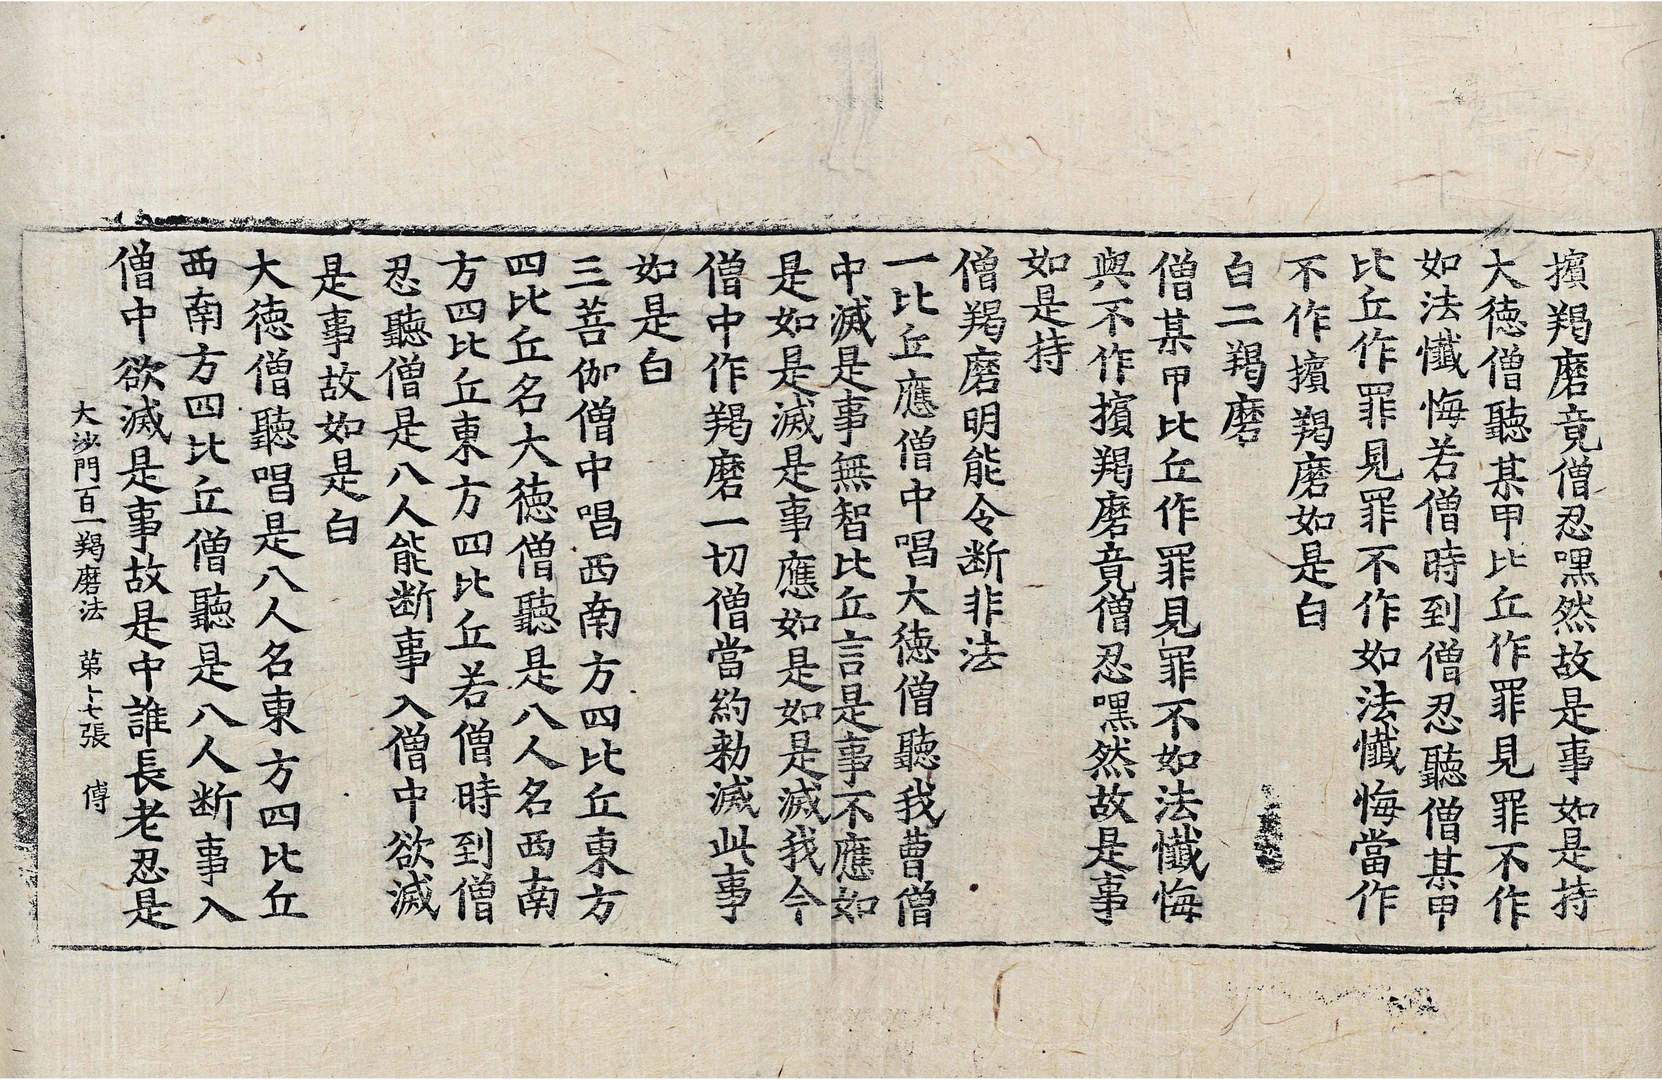 擯羯磨竟僧忍嘿然故是事如是持
大徳僧聽某甲比丘作罪見罪不作
如法懺悔若僧時到僧忍聽僧某甲
比丘作罪見罪不作如法懺悔當作
不作擯羯磨如是白
白二羯磨
僧某甲比丘作罪見罪不如法懺悔
與不作擯羯磨竟僧忍嘿然故是事
如是持
僧羯磨明能令断非法
一比丘應僧中唱大徳僧聽我曹僧
中滅是事無智比丘言是事不應如
是如是滅是事應如是如是滅我今
僧中作羯磨一切僧當約勑滅此事
如是白
三菩伽僧中唱西南方四比丘東方
四比丘名大徳僧聽是八人名西南
方四比丘東方四比丘若僧時到僧
忍聽僧是八人能断事入僧中欲滅
是事故如是白
大徳僧聽唱是八人名東方四比丘
西南方四比丘僧聽是八人断事入
僧中欲滅是事故是中誰長老忍是
大沙門百一羯磨法 第十七張 傅